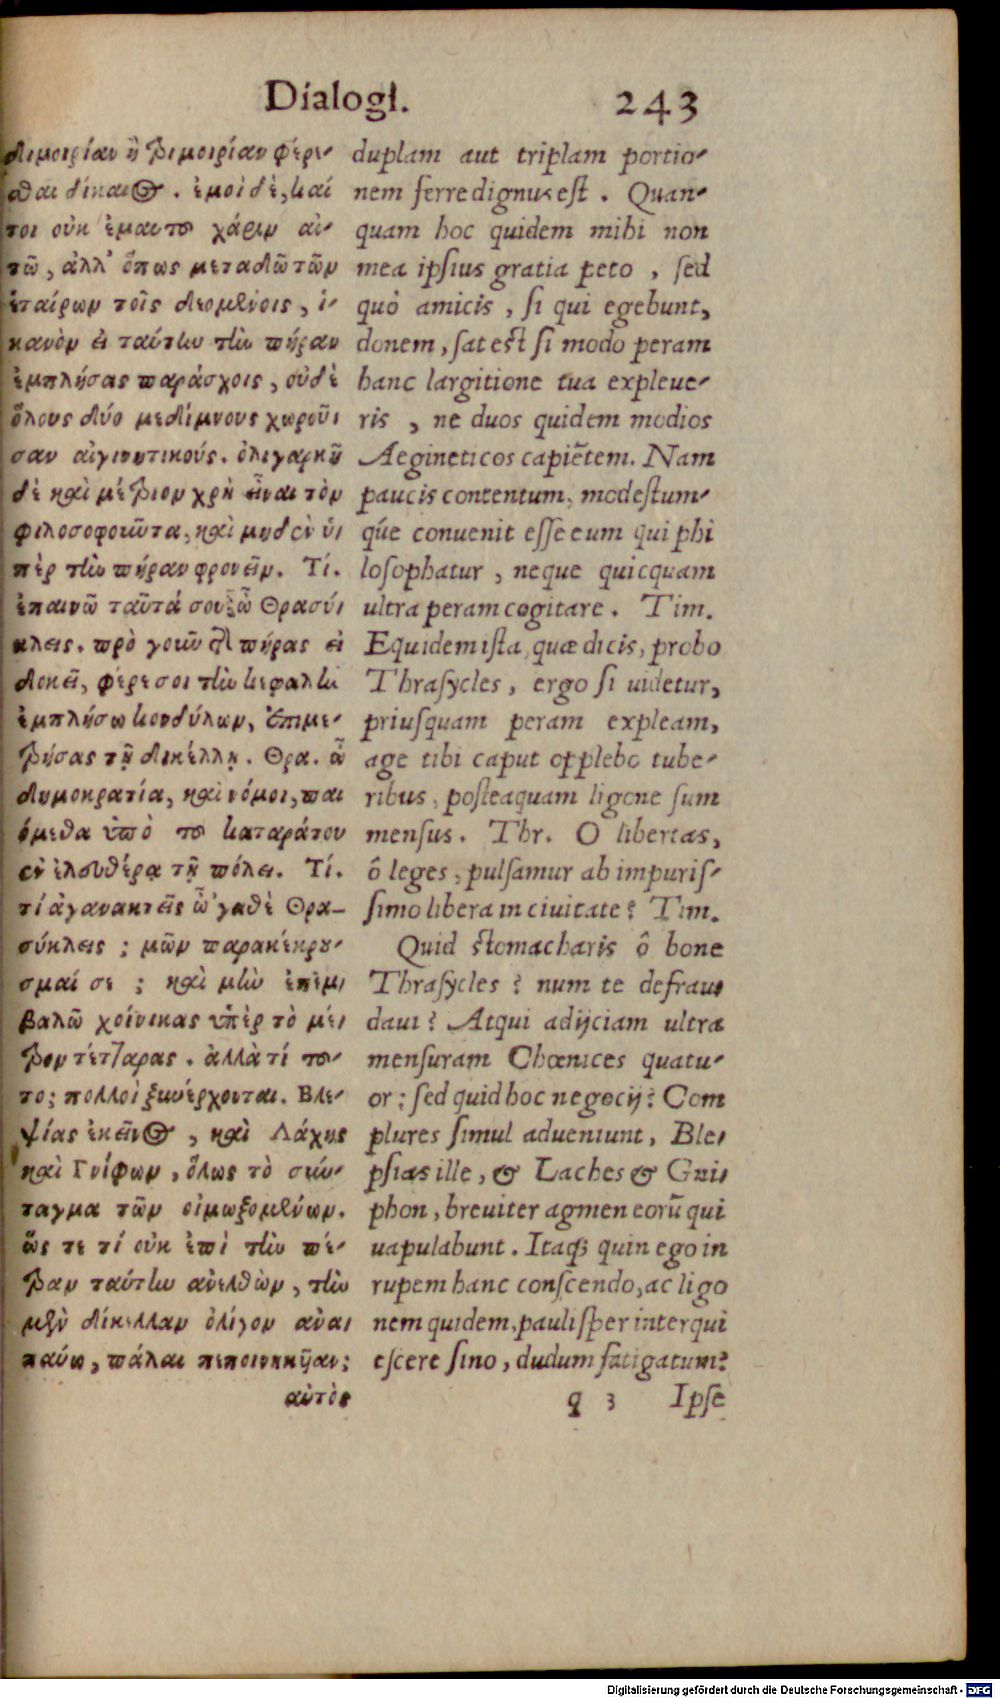 Dialogi. 243
διμοιρίαν ἢ τριμοιρίαν φέρε-
σθαι δίκαιος. ἐμοὶ δὲ, καί
τοι οὐκ ἐμαυτοῦ χάριν αἰ-
τῶ, ἀλλ' ὅπως μεταδῶ τῶν
ἑταίρων τοῖς δεομένοις, ἱ-
κανὸν εἰ ταύτην τὴν πήραν
ἐμπλήσας παράσχοις, οὐδὲ
ὅλους δύο μεδίμνους χωροῦ-
σαν αἰγινητικούς. ὀλιγαρκῆ
δὲ καὶ μέτριον χρὴ εἶναι τὸν
φιλοσοφοῦντα, καὶ μηδὲν ὑ-
πὲρ τὴν πήραν φρονεῖν. Τί.
ἐπαινῶ ταῦτά σου ὦ Θρασύ-
κλεις. πρὸ γοῦν τῆς πήρας εἰ
δοκεῖ, φέρε σοι τὴν κεφαλὴν
ἐμπλήσω κονδύλων, ἐπιμε-
τρήσας τῇ δικέλλῃ. Θρα. ὦ
δημοκρατία, καὶ νόμοι, παι
όμεθα ὑπὸ τοῦ καταράτου
ἐν ἐλευθέρᾳ τῇ πόλει. Τί.
τί ἀγανακτεῖς ὦ 'γαθὲ Θρα-
σύκλεις ; μῶν παρακέκρου-
σμαί σε ; καὶ μὴν ἐπεμ-
βαλῶ χοίνικας ὑπὲρ τὸ μέ-
τρον τέτταρας. ἀλλὰ τί τοῦ-
το; πολλοὶ ξυνέρχονται. Βλε-
ψίας ἐκεῖνος, καὶ Λάχης
καὶ Γνίφων, ὅλως τὸ σύν-
ταγμα τῶν οἰμωξομένων.
ὥς τε τί οὐκ ἐπὶ τὴν πέ-
τραν ταύτην ἀνελθὼν, τὴν
μὲν δίκελλαν ὀλίγον ἀνα-
παύω, πάλαι πεπονηκυῖαν;
αὐτὸς
duplam aut triplam portio-
nem ferre dignus est. Quan-
quam hoc quidem mihi non
mea ipsius gratia peto, sed
quò amicis, si qui egebunt,
donem, sat est si modo peram
hanc largitione tua expleue-
ris, ne duos quidem modios
Aegineticos capiētem. Nam
paucis contentum, modestum-
q́ue conuenit esse eum qui phi
losophatur, neque quicquam
ultra peram cogitare. Tim.
Equidem ista, quæ dicis, probo
Thrasycles, ergo si uidetur,
priusquam peram expleam,
age tibi caput opplebo tube-
ribus, posteaquam ligone sum
mensus. Thr. O libertas,
ô leges, pulsamur ab impuris-
simo libera in ciuitate? Tim.
Quid stomacharis ô bone
Thrasycles? num te defrau-
daui? Atqui adijciam ultra
mensuram Chœnices quatu-
or; sed quid hoc negocij? Com
plures simul adueniunt, Ble-
psias ille, & Laches & Gni-
phon, breuiter agmen eorũ qui
uapulabunt. Itaq; quin ego in
rupem hanc conscendo, ac ligo
nem quidem, paulisper interqui
escere sino, dudum fatigatum?
q 3 Ipse
Digitalisierung gefördert durch die Deutsche Forschungsgemeinschaft - DFG